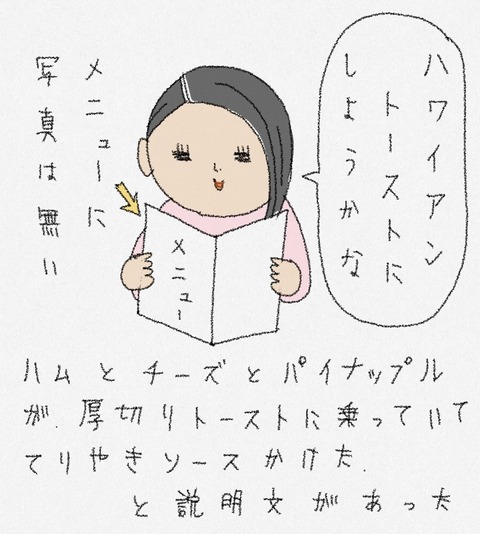 ハワイアン
トーストに
しようかな
メニューに
写真は無い
メニュー
ハムとチーズとパイナップル
が、厚切りトーストに乗っていて
てりやきソースかけた、
と説明文があった